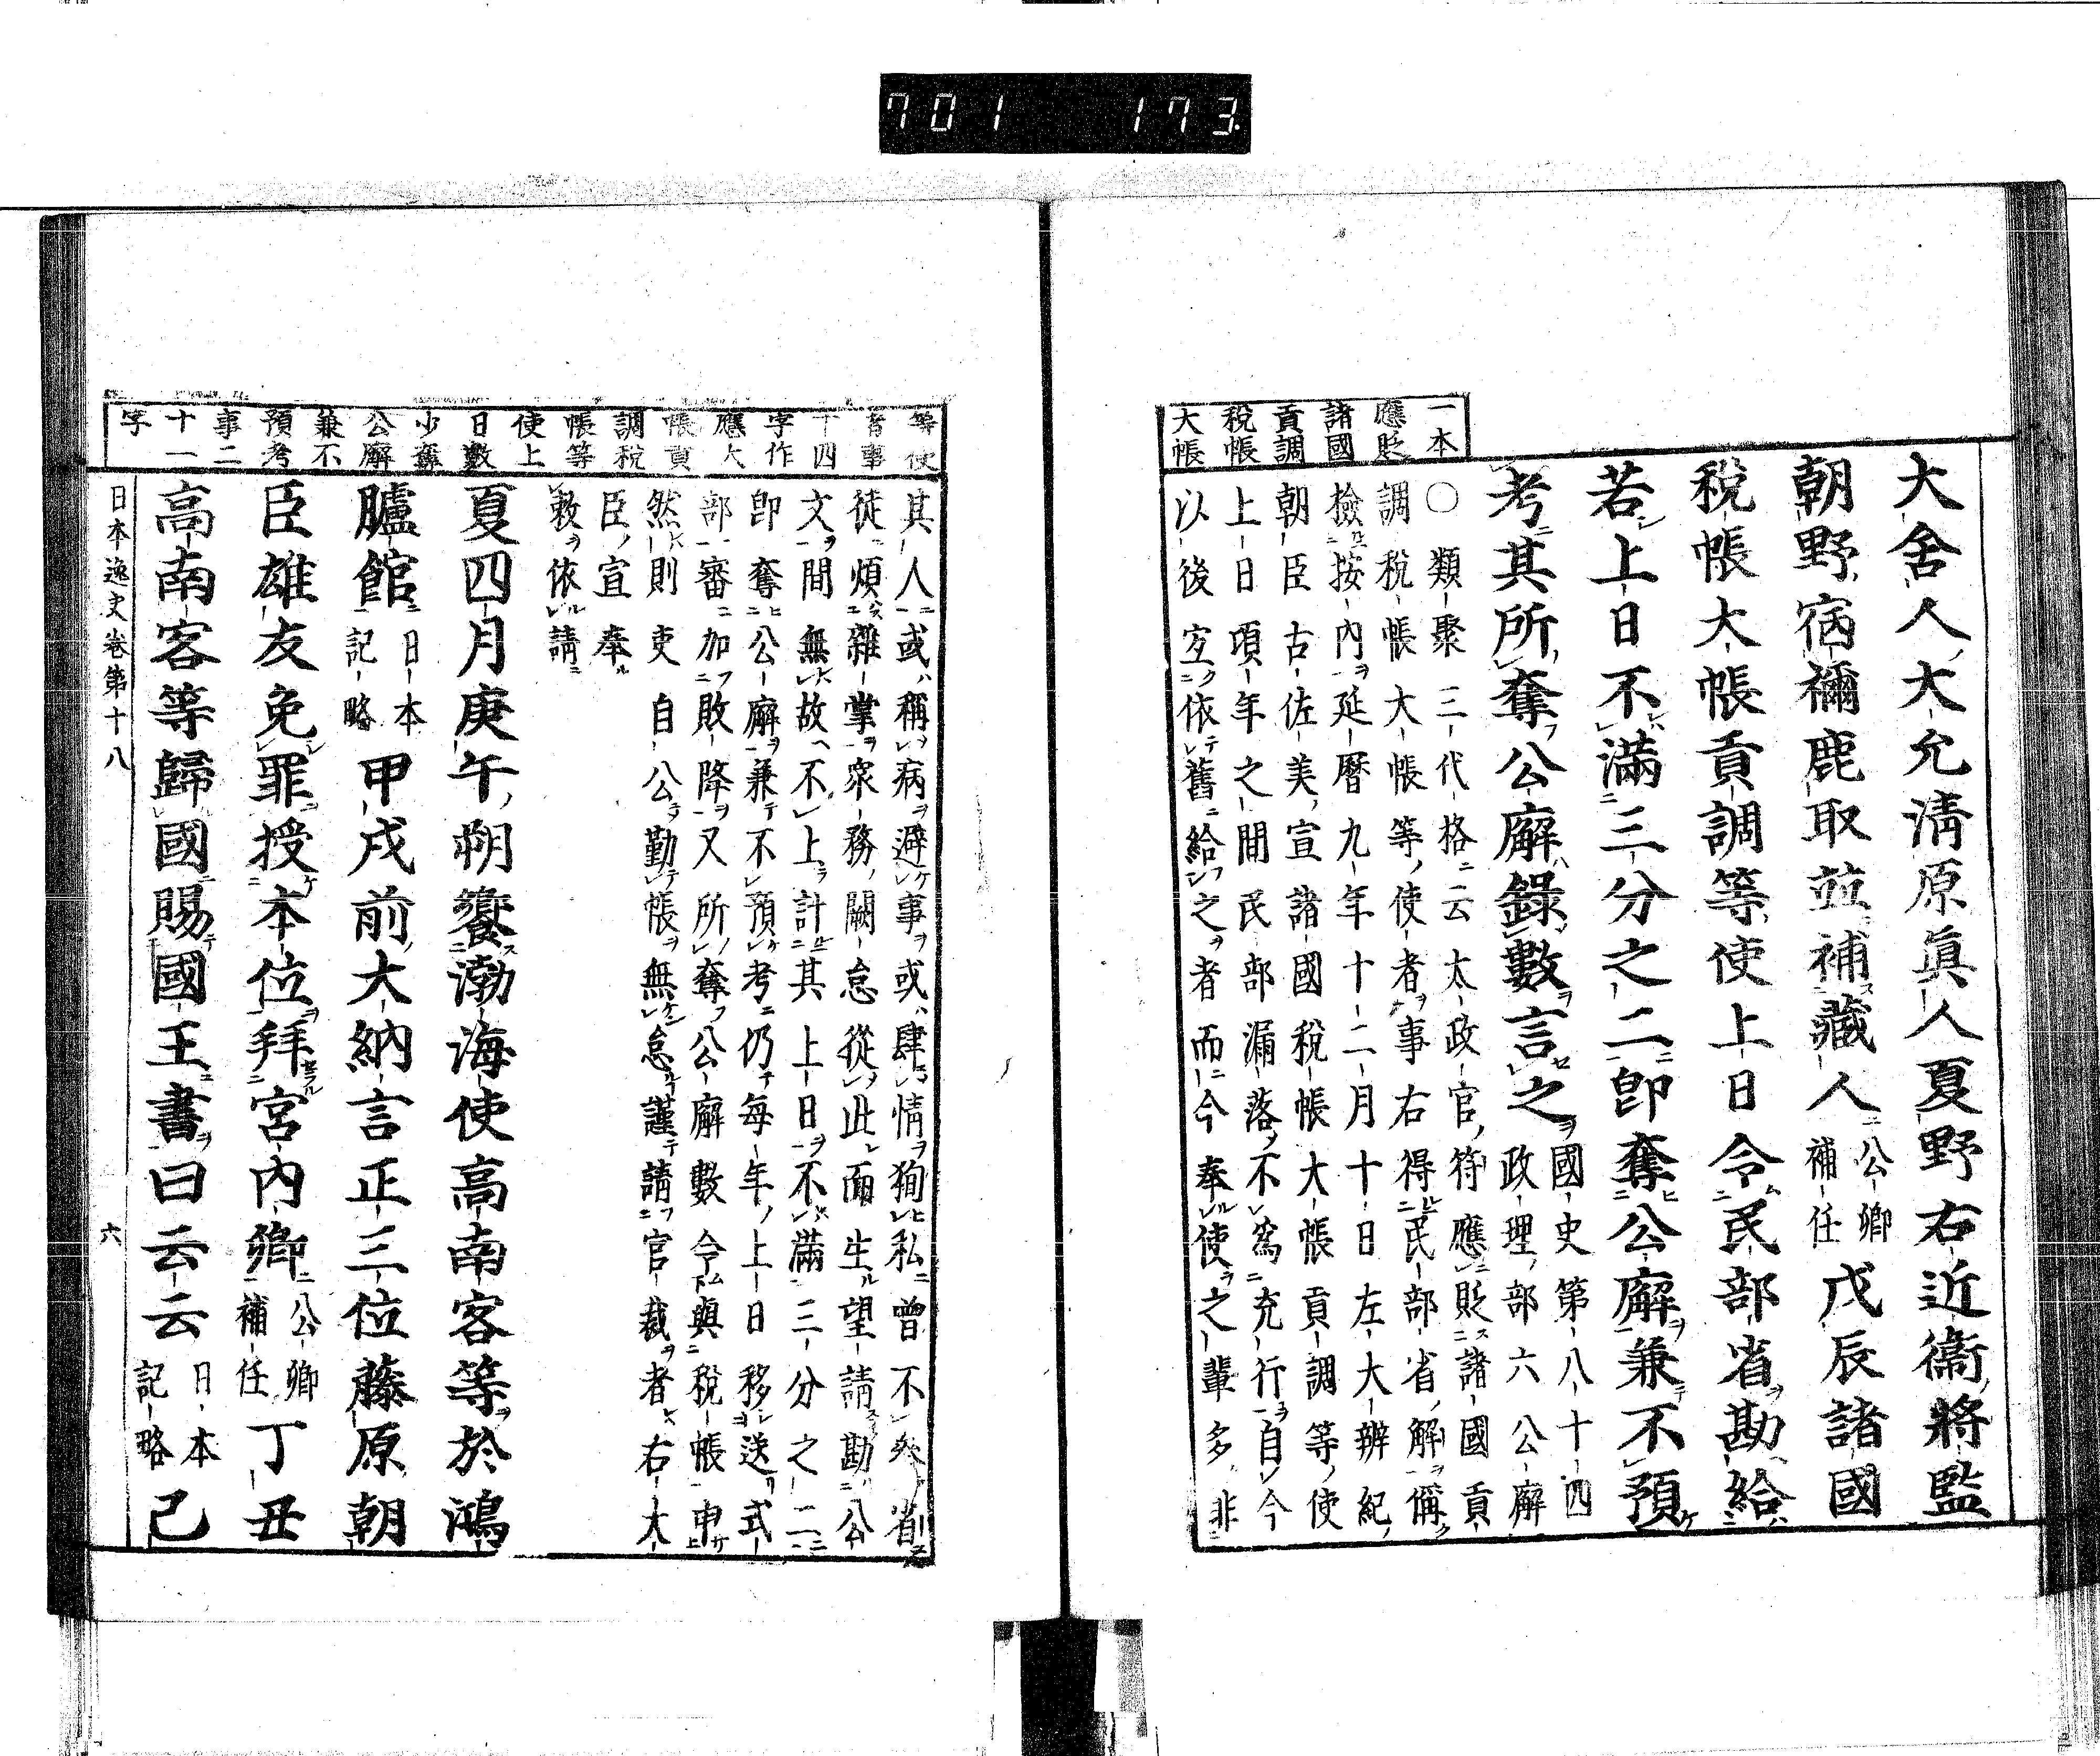 701 173
一本
應貶
諸國
貢調
税帳
大帳
大舍人大允淸原眞人夏野右近衞將監
朝野宿禰鹿取並補藏人公卿補任戊辰諸國
税帳大帳貢調等使上日令民部省勘給
若上日不滿三分之二卽奪公廨兼不預
考其所奪公廨錄數言之國史第八十四政理部六公廨
○類聚三代格云太政官符應貶諸國貢
調税帳大帳等使者事右得民部省解偁
檢按內延曆九年十二月十日左大辨紀
朝臣古佐美宣諸國税帳大帳貢調等使
上日頃年之間民部漏落不爲充行自今
以後宜依舊給之者而今奉使之輩多非
等使
者事
十四
字作
應大
帳貢
調税
帳等
使上
日數
少奪
公廨
兼不
預考
事二
十一
字
其人或稱病避事或肆情狥私曾不省
徒煩雜掌衆務闕怠從此而生望請勘公
文間無故不上計其上日不滿三分之二
卽奪公廨兼不預考仍每年上日移送式
部審加敗降又所奪公廨數令與税帳申
然則吏自公勤帳無怠謹請官裁者右大
臣宣奉
敕依請
夏四月庚午朔饗渤海使高南客等於鴻
臚館日本記略甲戌前大納言正三位藤原朝
臣雄友免罪授本位拜宮內卿公卿補任丁丑
高南客等歸國賜國王書曰云云日本記略己
日本逸史卷第十八 六